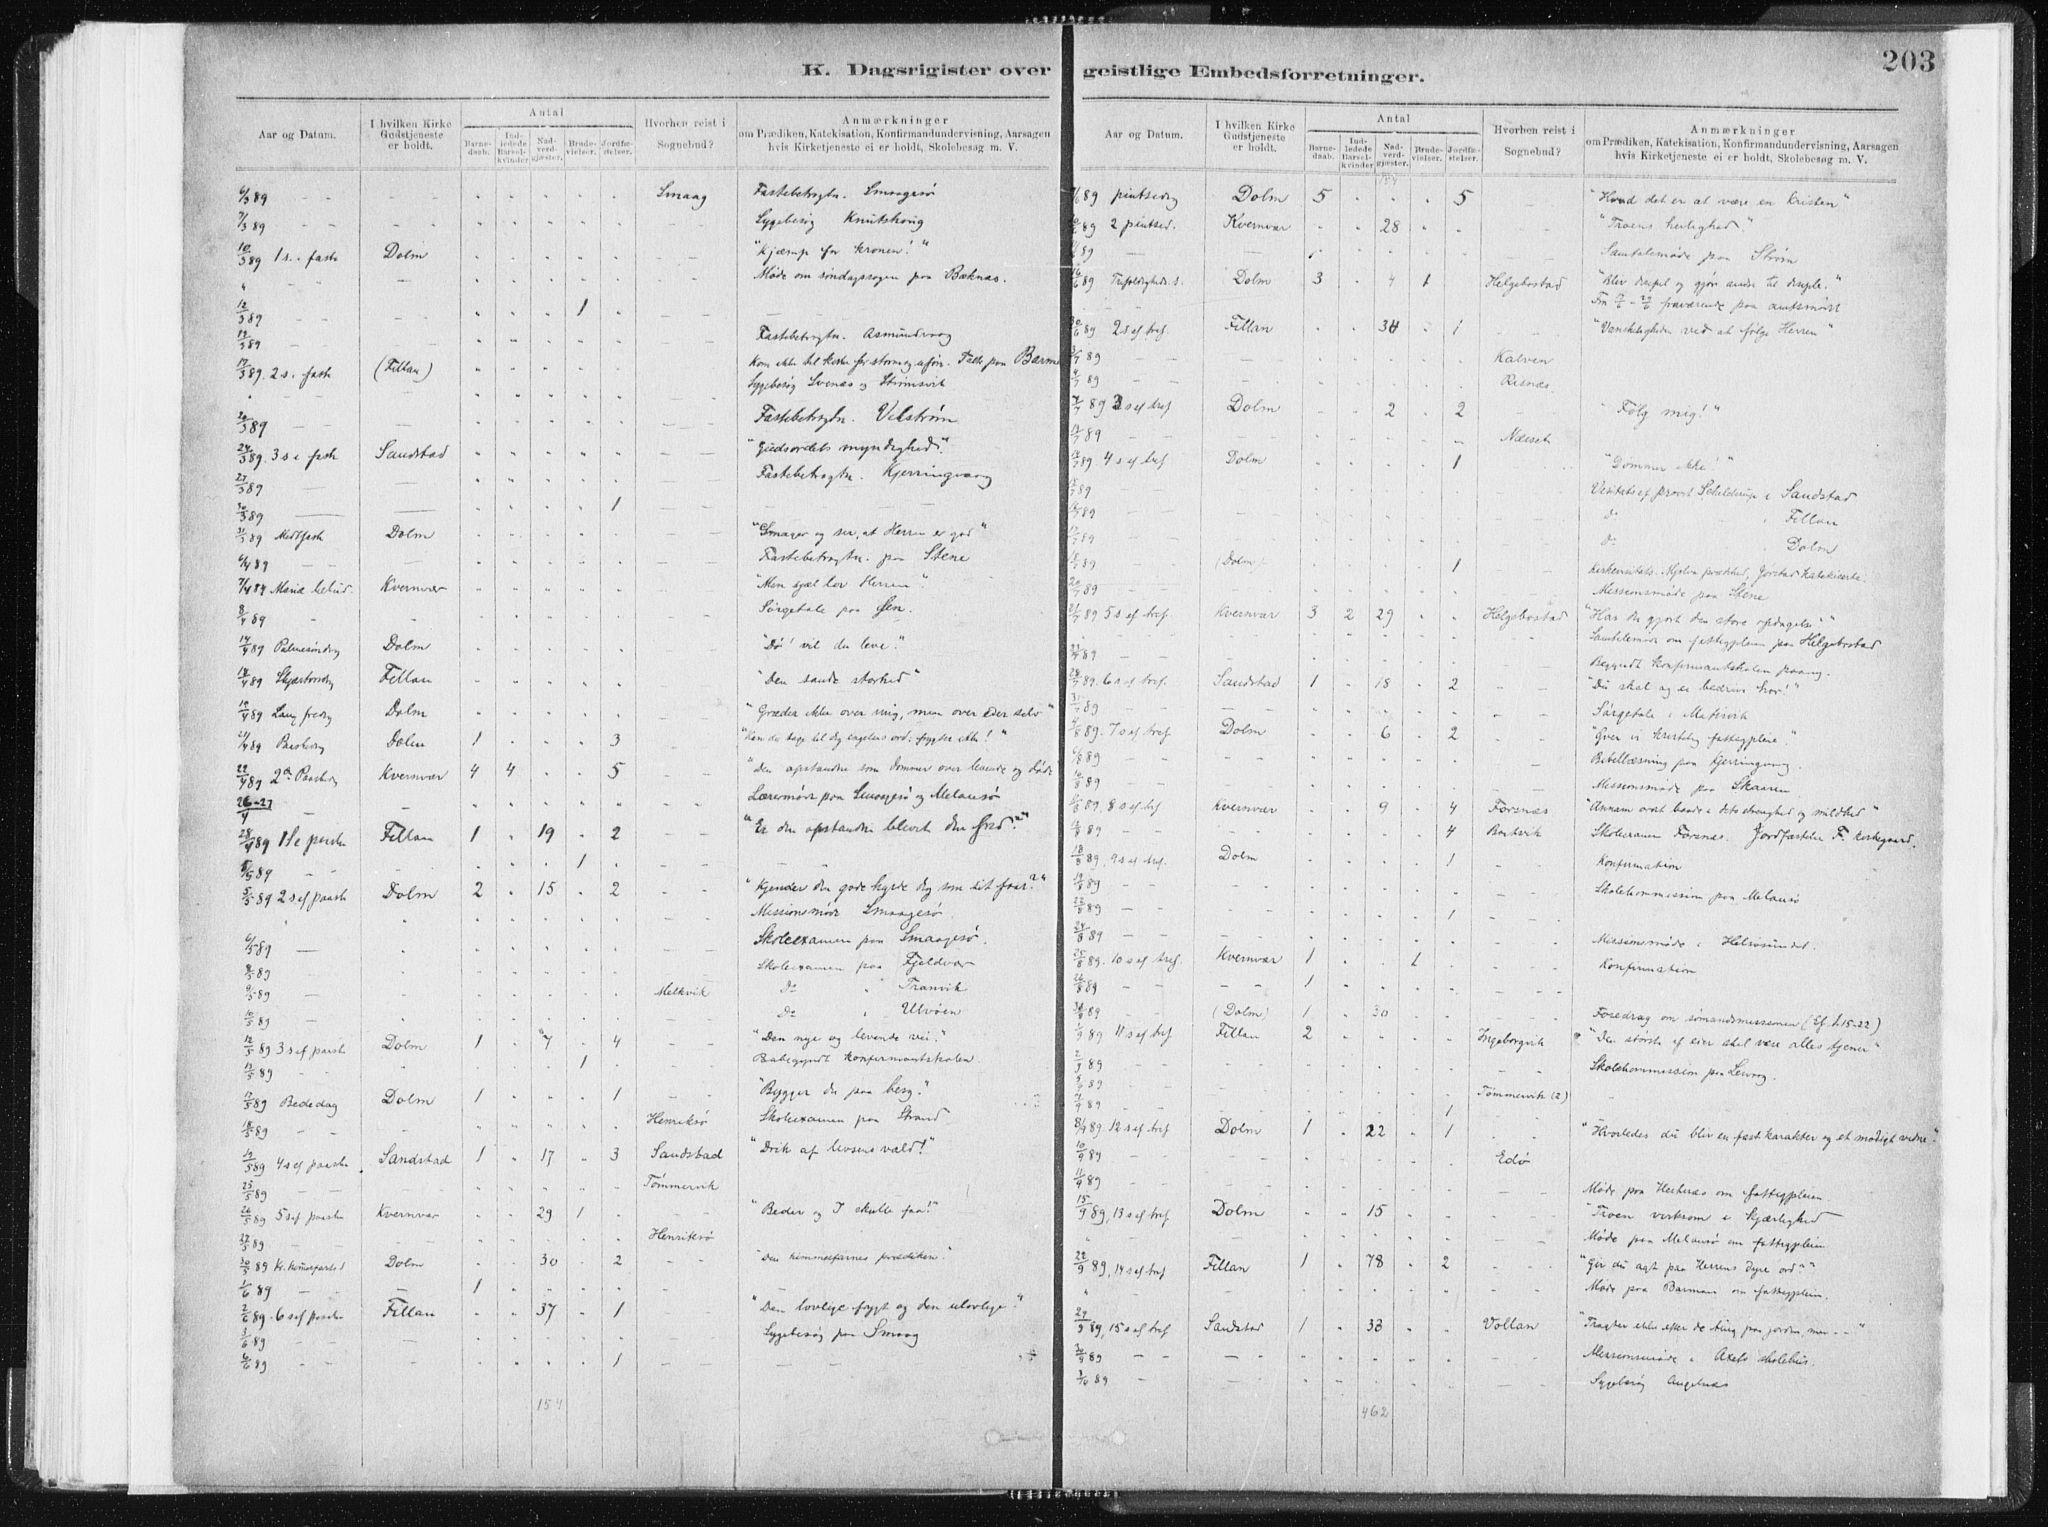 K. Dagsrigister over geistlige Embedsforretninger.
203
Aar og Datum.
I hvilken Kirke Gudstjeneste er holdt.
Antal
Barne-daab.
Ind-ledede Barsel-kvinder
Nad-verd-gjæster.
Brude-vielser.
Jordfæ-stelser.
Hvorhen reist i Sognebud?
Anmærkninger
om Prædiken, Katekisation, Konfirmandundervisning, Aarsagen
hvis Kirketjeneste ei er holdt, Skolebesøg m. V.
6/3 89 - - - - Smaag Fastebetragtn. Smaagesø
7/3 89 - - - - Sygebesøg Knutshoug
10/3 89 1 s. i faste Dolm "Kjæmp for kronen!"
" - - Møde om søndagssagen paa Bæknæs.
12/3 89 1
13/3 89 - - Fastebetragtn. Asmundvaag
17/3 89. 2 s. i fast (Fillan) Kom ikke til kirke for storm og uføre. Tale paa Barm
Sygebesøg Svenæs og Strømsvik
20/3 89 - - Fastebetragtn. Vikstrøm
24/3 89. 3 s i fast Sandstad "Gudsordets myndighed".
27/3 89 - - Fastebetragtn. Kjerringvaag
30/3 89 - - 1
31/3 89 Midtfast Dolm "Smager og ser, at Herren er god"
6/4 89 - - Fastebetragtn. paa Stene
7/4 89 Mariæ bebud. Kvernvær "Min sjæl lov Herren".
8/4 89 Sørgetale paa Øen.
14/4 89 Palmesøndag Dolm "Dø! vil du leve".
18/4 89 Skjærtorsdag Fillan "Den sande storhed"
19/4 89 Langfredag Dolm "Græder ikke over mig, men over eder selv"
21/4 89 Paaskedag Dolm 1 3 "Kan du tage til dig engelens ord: frygter ikke!"
22/4 89 2den Paaskedag Kvernvær 4 4 5 "Den opstandne som dommer over levende og døde
26-27/4 - Læremøde paa Smaagesø og Melansø
28/4 89 1 S e paaske Fillan 1 19 2 "Er den opstandne blevet din fred?"
5/5 89 - - 1
5/5 89 2 s ef paaske Dolm 2 15 2 "Kjender den gode hyrde dig som sit faar?"
Missionsmøde Smaagesø.
6/5 89 - Skoleexamen paa Smaagesø.
8/5 89 - Skoleexamen paa Fjeldvær
9/5 89 - Melkvik Do " Tranvik
10/5 89 - Do " Ulvøen
12/5 89 3 s ef paaske Dolm 1 7 4 "Den nye og levende vei".
13/5 89 1 Konfirmantskolen.
17/5 89 Bededag Dolm 1 1 "Bygger du paa berg".
18/5 89 - - Henriksø Skoleexamen paa Strand
19/5 89 4 s ef paaske Sandstad 1 17 3 Sandstad "Drik af livsens væld!"
25/5 89 - - Tømmervik
26/5 89 5 s ef paaske Kvernvær 29 1 "Beder og I skulle faa!"
27/5 89 - - Henriksø
30/5 89 Kr. himmelfartsd Dolm 30 2 "Den himmelfarnes prædiken"
1/6 89 - 1
2/6 89. 6 s ef paaske Fillan 37 1 "Den lovlige frygt og den ulovlige".
3/6 89 - - Sygebesøg paa Smaag
6/6 89 - - 1
154
Aar og Datum.
I hvilken Kirke Gudstjeneste er holdt.
Antal
Barne-daab.
Ind-ledede Barsel-kvinder
Nad-verd-gjæster.
Brude-vielser.
Jordfæ-stelser.
Hvorhen reist i Sognebud?
Anmærkninger
om Prædiken, Katekisation, Konfirmandundervisning, Aarsagen
hvis Kirketjeneste ei er holdt, Skolebesøg m. V.
9/6 89 pintsedag Dolm 5 5 "Hvad det er at være en kristen"
10/6 89 2 pintsed. Kvernvær 28 "Troens herlighed".
89 - Samtalemøde paa Strøm
16/6 89 Trefoldigheds. s. Dolm 3 4 1 Helgebostad "Bliv discipel og gjør andre til disciple."
fraværende paa amtsmødet
30/6 89 2 s ef tref Fillan 34 1 "Vanskeligheden ved at følge Herren"
3/7 89 - - Kalven
4/7 89 - - Risnæs
7/7 89 3 s ef tref Dolm 2 2 "Følg mig!"
89 - - Næsset
14/7 89 4 s ef tref Dolm 1 "Dømmer ikke!"
89 Visitats af provst Schelderup i Sandstad
89 Do Fillan
17/7 89 Do Dolm
89 (Dolm) 1
20/7 89 Missionsmøde paa Stene
21/7 89 5 s ef tref. Kvernvær 3 2 29 Helgebostad "Har du gjort den store opdagelse?"
Samtalemøde om fattigpleien paa Helgebostad
89 - - Begyndt konfirmantskolen
28/7 89. 6 s ef tref. Sandstad 1 18 2 "Du skal og er bedrive hor!"
31/7 89 - - Sørgetale i
4/8 89. 7 s ef tref Dolm 6 2 "Øver vi kristelig fattigpleie"
6/8 89 - - Bibellæsning paa Kjerringvaag.
10/8 89 - - Missionsmøde paa Skaaren
11/8 89. 8 s ef tref Kvernvær 9 4 Forsnæs "Annam ordet baade i dets strenghed og mildhed"
89 - - 4 Bortvik Skoleexamen Forsnæs. Jordfæstelse F. kirkegaard.
18/8 89, 9 s ef tref. Dolm 1 Konfirmation
19/8 89 Skolekommission paa Melansø
22/8 89 - - 1
24/8 89 - - Missionsmøde i Helsøsundet.
25/8 89. 10 s ef tref. Kvernvær 1 1 Konfirmation
26/8 89 - - 1
89 - (Dolm) 1 30 Foredrag om sømandsmissionen (Ef. 1.15-22)
1/9 89 11 s ef tref Fillan 2 Ingeborgvik "Den største af eder skal være alles tjener"
2/9 89 - - Skolekommission paa Levaag.
5/9 89 - -
7/9 89 - - 1 Tømmervik (2)
8/9 89. 12 s ef tref Dolm 1 22 1 "Hvorledes du bliv en fast karakter og et modigt vidne".
10/9 89 - - Edø
11/9 89 - - Møde paa Hestnæs om fattigpleien
15/9 89, 13 s ef tref Dolm 15 "Troen virksom i kjærlighed
" Møde paa Melansø om fattigpleien
22/9 89, 14 s ef tref Fillan 1 78 2 "Gir du agt paa Herrens dyre ord?"
" Møde paa Barman om fattigpleien.
29/9 89, 15 s ef tref Sandstad 1 33 Vollan "Tragter ikke efter de ting paa jorden, men - -"
30/9 89 - - Missionsmøde i Axets skolehus.
89 - - Sygebesøg Angelnæs
462